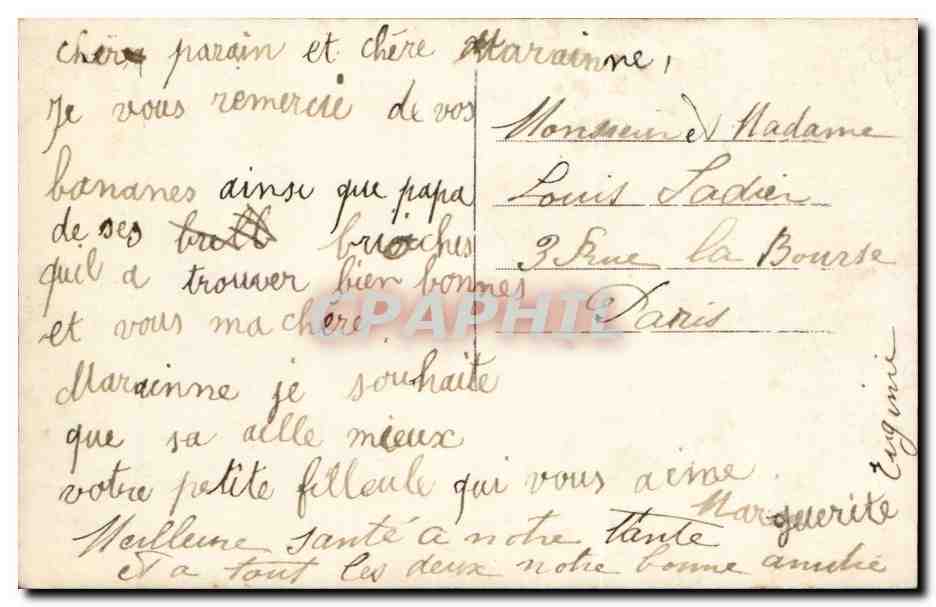 chère parain et chère Marainne,
Je vous remercie de vos
bananes ainsi que papa
de ses brioches
quil a trouver bien bonnes
et vous ma chère
Marainne je souhaite
que sa aille mieux
votre petite filleule qui vous aime
Marguerite
Eugénie
Meilleure santé à notre Tante
et a tout les deux notre bonne amitié
Monsieur et Madame
Louis Sadier
3 Rue la Bourse
Paris
CPAPHIL